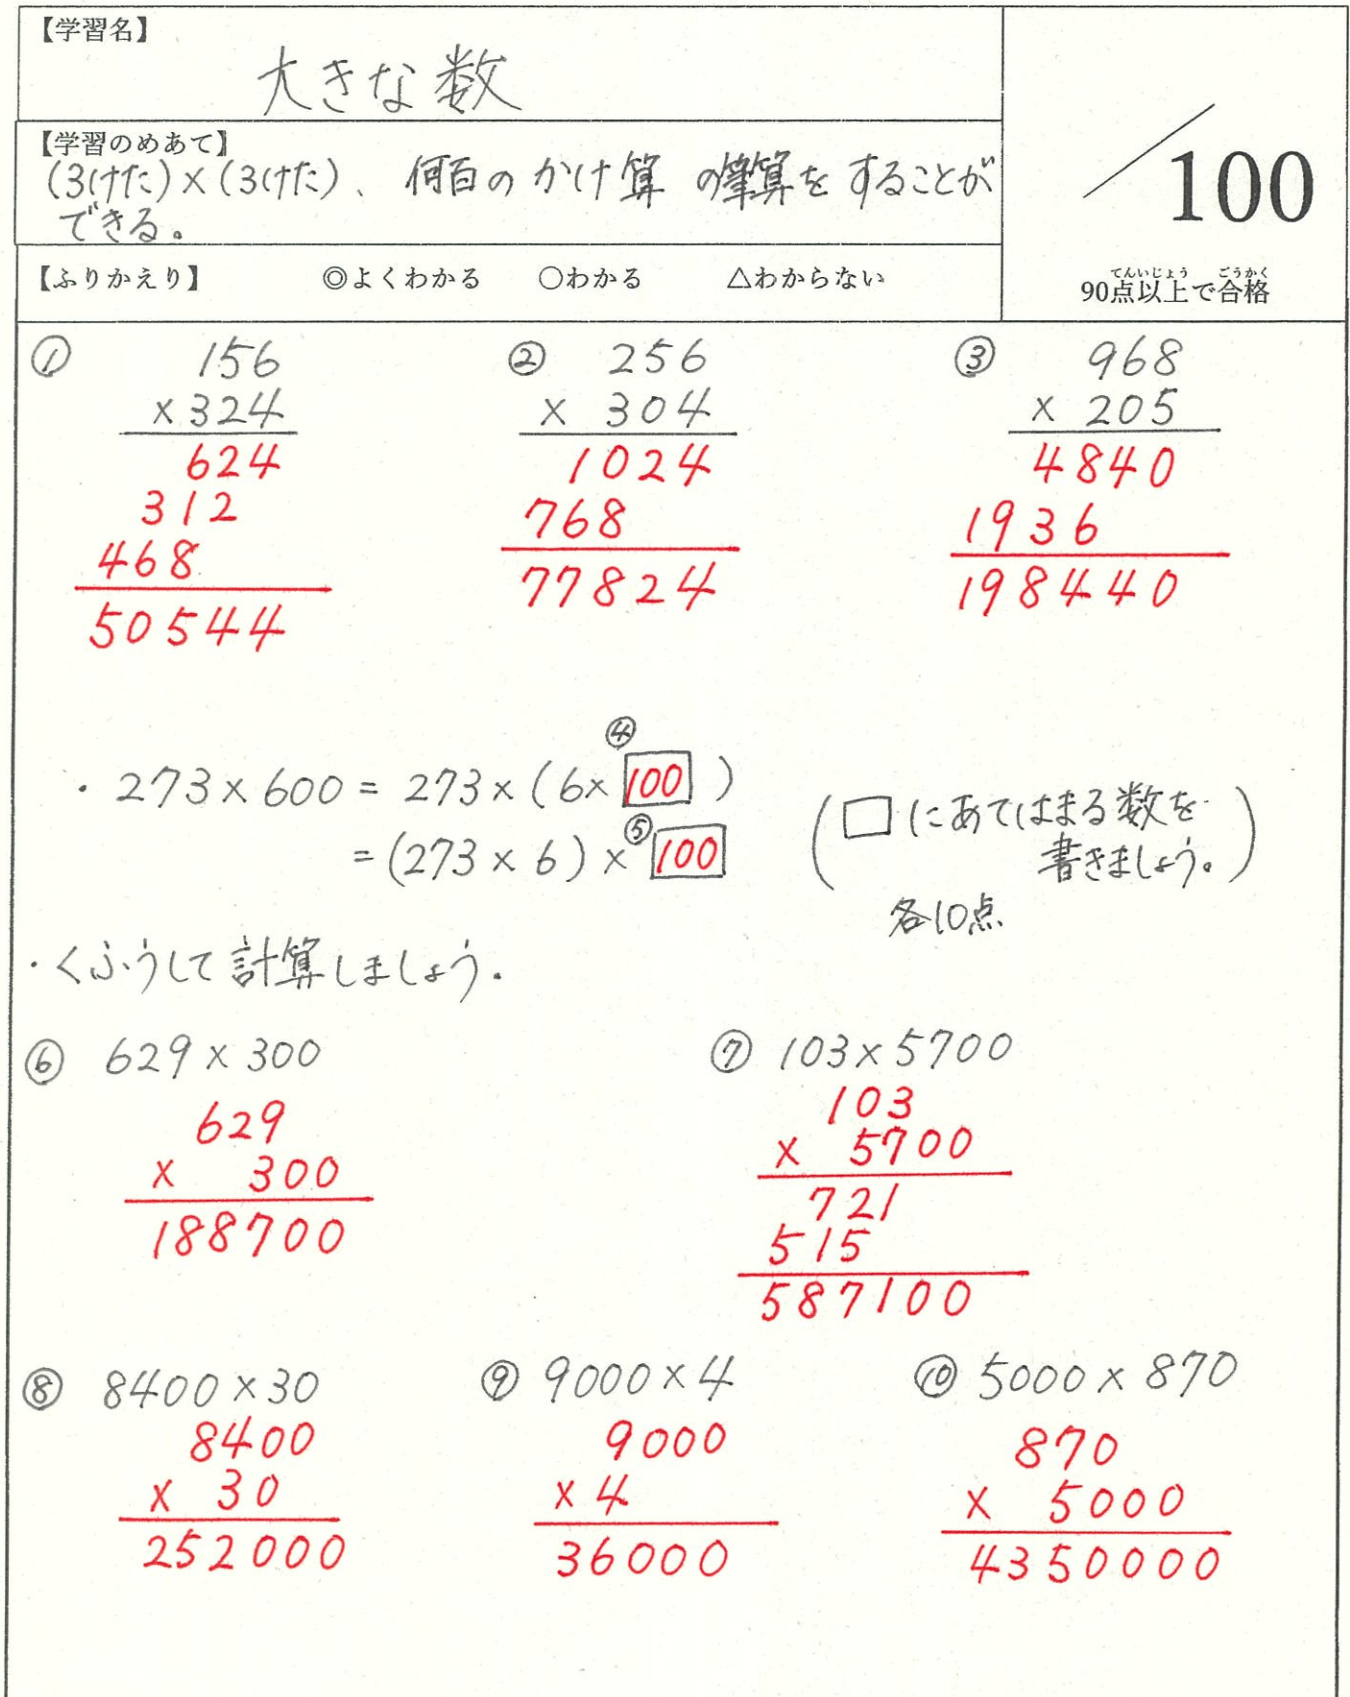 【学習名】
大きな数
【学習のめあて】
(3けた)×(3けた)、何百のかけ算の筆算をすることが
できる。
【ふりかえり】 ◎よくわかる ○わかる △わからない
／100
てんいじょう ごうかく
90点以上で合格
① 156
×324
624
312
468
50544
② 256
× 304
1024
768
77824
③ 968
× 205
4840
1936
198440
④
・273×600 = 273×(6×100)
⑤
=(273×6)×100
(□にあてはまる数を
書きましょう。)
各10点
・くふうして計算しましょう.
⑥ 629×300
629
× 300
188700
⑦ 103×5700
103
× 5700
721
515
587100
⑧ 8400×30
8400
× 30
252000
⑨ 9000×4
9000
×4
36000
⑩ 5000×870
870
× 5000
4350000